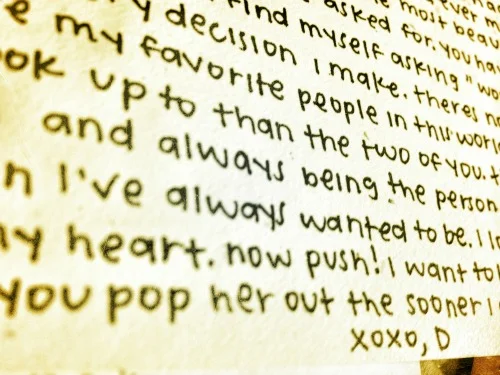 asked for. you hav
y decision I make. theres n
e my favorite people in this worl
ook up to than the two of you. t
and always being the person
n I've always wanted to be. I l
my heart. now push! I want to
you pop her out the sooner I
xoxo, D